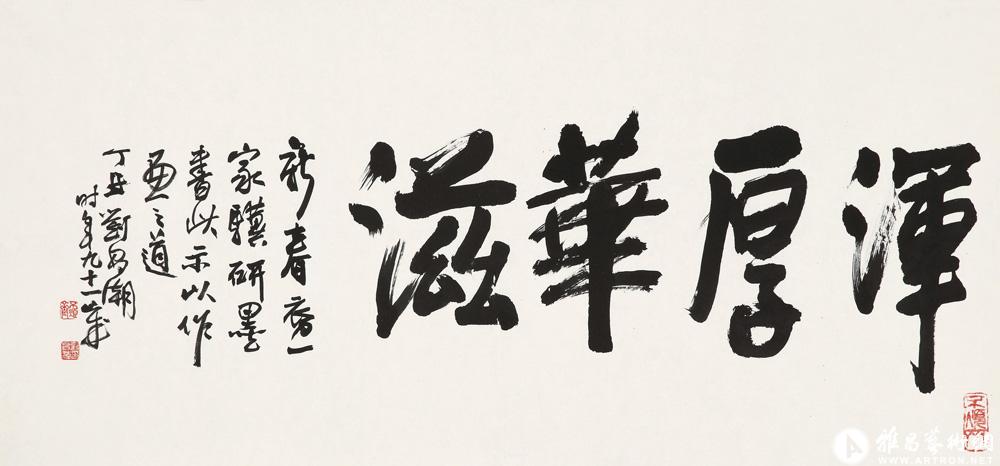 渾厚華滋
新春
家驥研墨
書此示以作
畫之道
丁丑劉昌潮
时年九十一歲
雅昌藝術網
WWW.ARTRON.NET